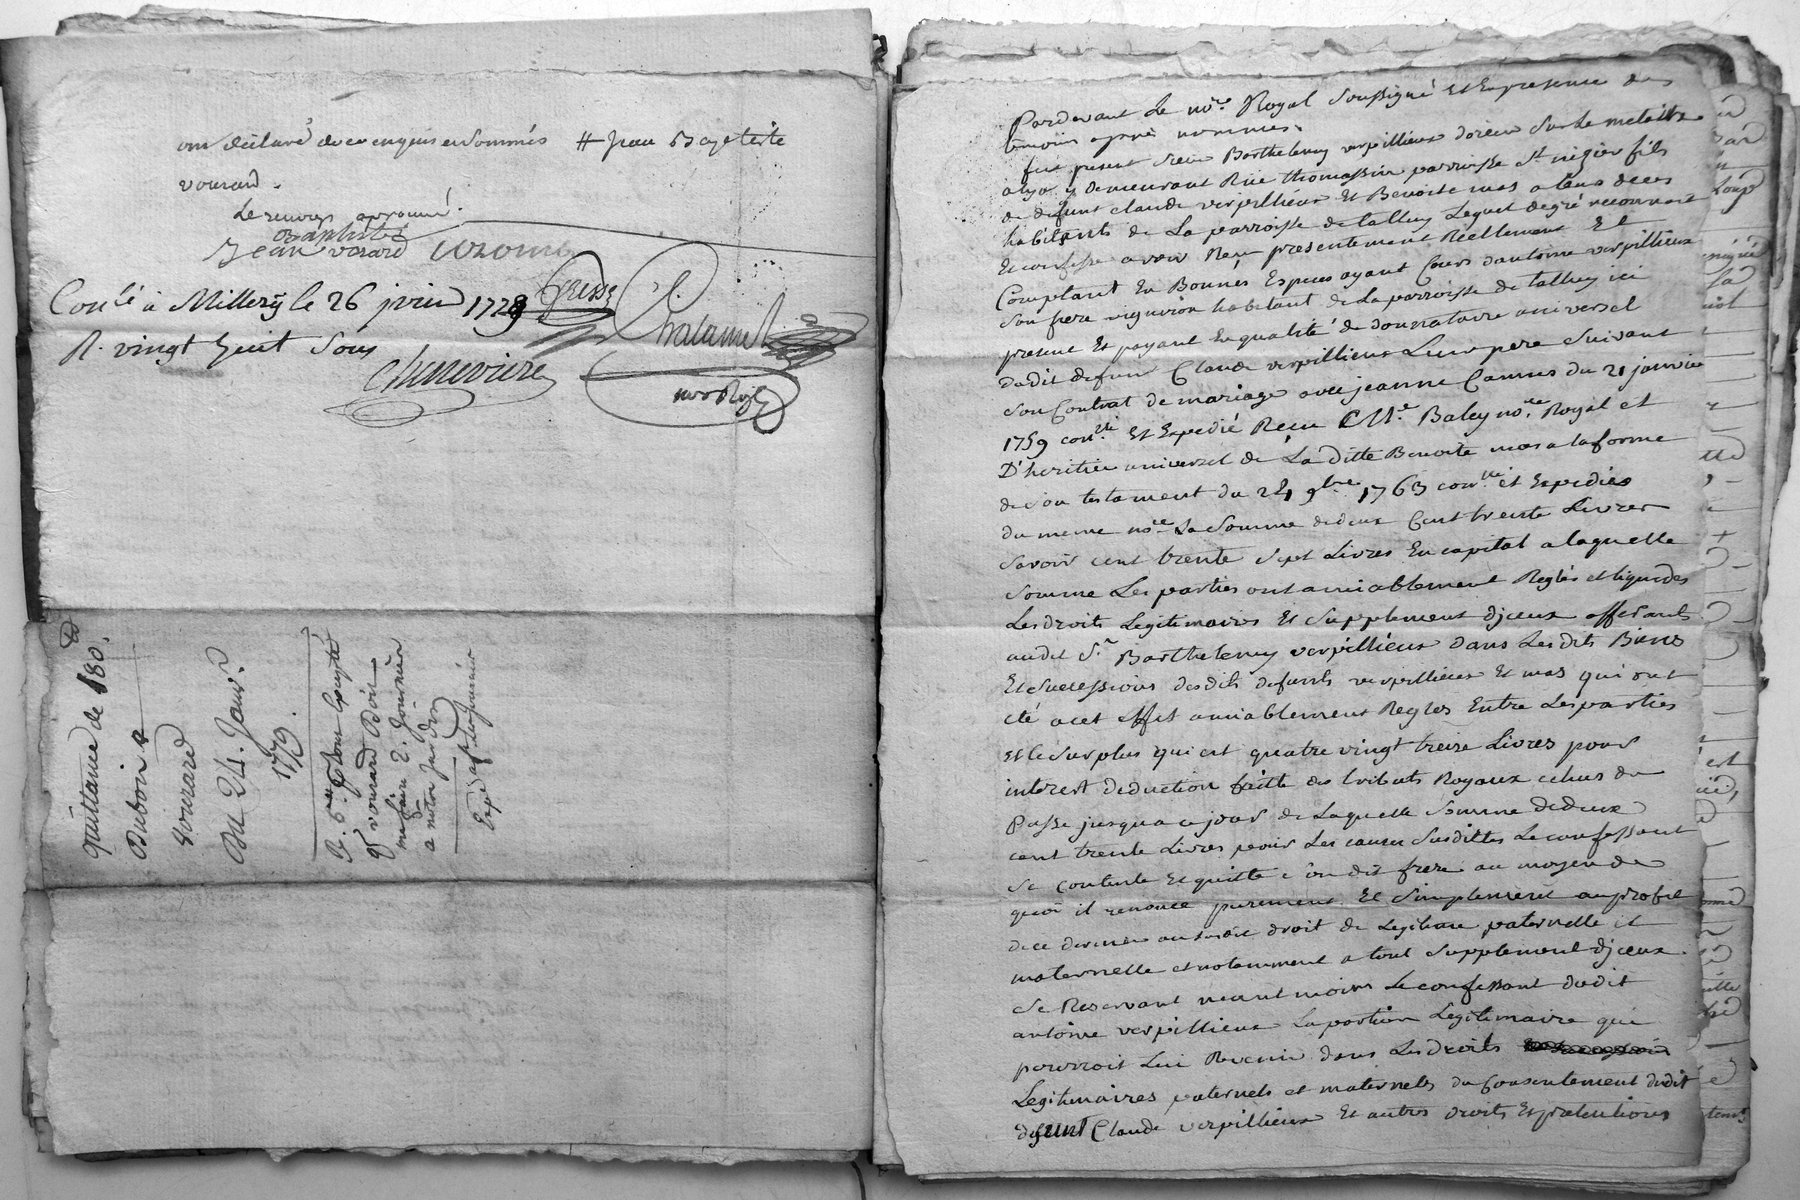 ont déclaré de ce enquis et sommés # Jean Baptiste
vourard.
Le renvoy approuvé.
Baptiste
Jean vorard
Con.lé à Millery le 26 juin 1779
R. vingt huit Sous
Chenevière
Quittance de 180.
Dubois a
vourard
Du 24. Janv.
1779.
Pardevant Le no.re Royal Soussigné Et En presence des
temoins aprés nommés.
fut present Sieur Barthelemy verpillieux doreur Sur Le metail
a Lyon y demeurant Rüe thomassin parroisse St nizier fils
de defunt claude verpillieux Et Benoite mas a leurs deces
habitants de La parroisse de talluy Lequel degré reconnoit
Et confesse avoir Reçu presentement Réellement Et
Comptant En Bonnes Especes ayant Cours d'antoine verpillieux
Son frere vigneron habitant de La parroisse de talluy ici
present Et payant En qualité de donnataire universel
dudit defun Claude verpillieux Leur pere Suivant
Son Contrat de mariage avec jeanne Cannes du 21 janvier
1759 con.lé Et Expedié Recu M.e Baley no.re Royal et
D'heritier universel de La ditte Benoite mas a la forme
de Son testament du 24 9bre 1763 con.lé et Expediés
du meme no.re La Somme de deux Cent trente Livres
Savoir cent trente Sept Livres En capital a laquelle
Somme Les parties ont amiablement Reglés et liquidés
Les droits Legitimaires Et Supplement d'jceux afferants
audit S.r Barthelemy verpillieux dans Les dits Biens
Et Successions desdits defunts verpillieux Et mas qui ont
eté a cet effet amiablement Reglés Entre Les parties
et le Surplus qui est quatre vingt treize Livres pour
interest deduction faitte des tributs Royaux echus du
Passé jusqua ce jour de Laquelle Somme de deux
cent trente Livres pour Les causes Susdittes Le confessant
Se contente Et quitte Son dit frere au moyen de
quoi il renonce purement Et Simplement au profit
de ce dernier au susdit droit de Legitime paternelle et
maternelle et notamment a tout Supplement d'jceux.
Se Reservant neantmoins Le confessant dudit
antoine verpillieux La portion Legitimaire qui
pourroit Lui Revenir dans Les droits
Legitimaires paternels et maternels du Consentement dudit
defunt Claude verpillieux Et autres droits Et pretentions